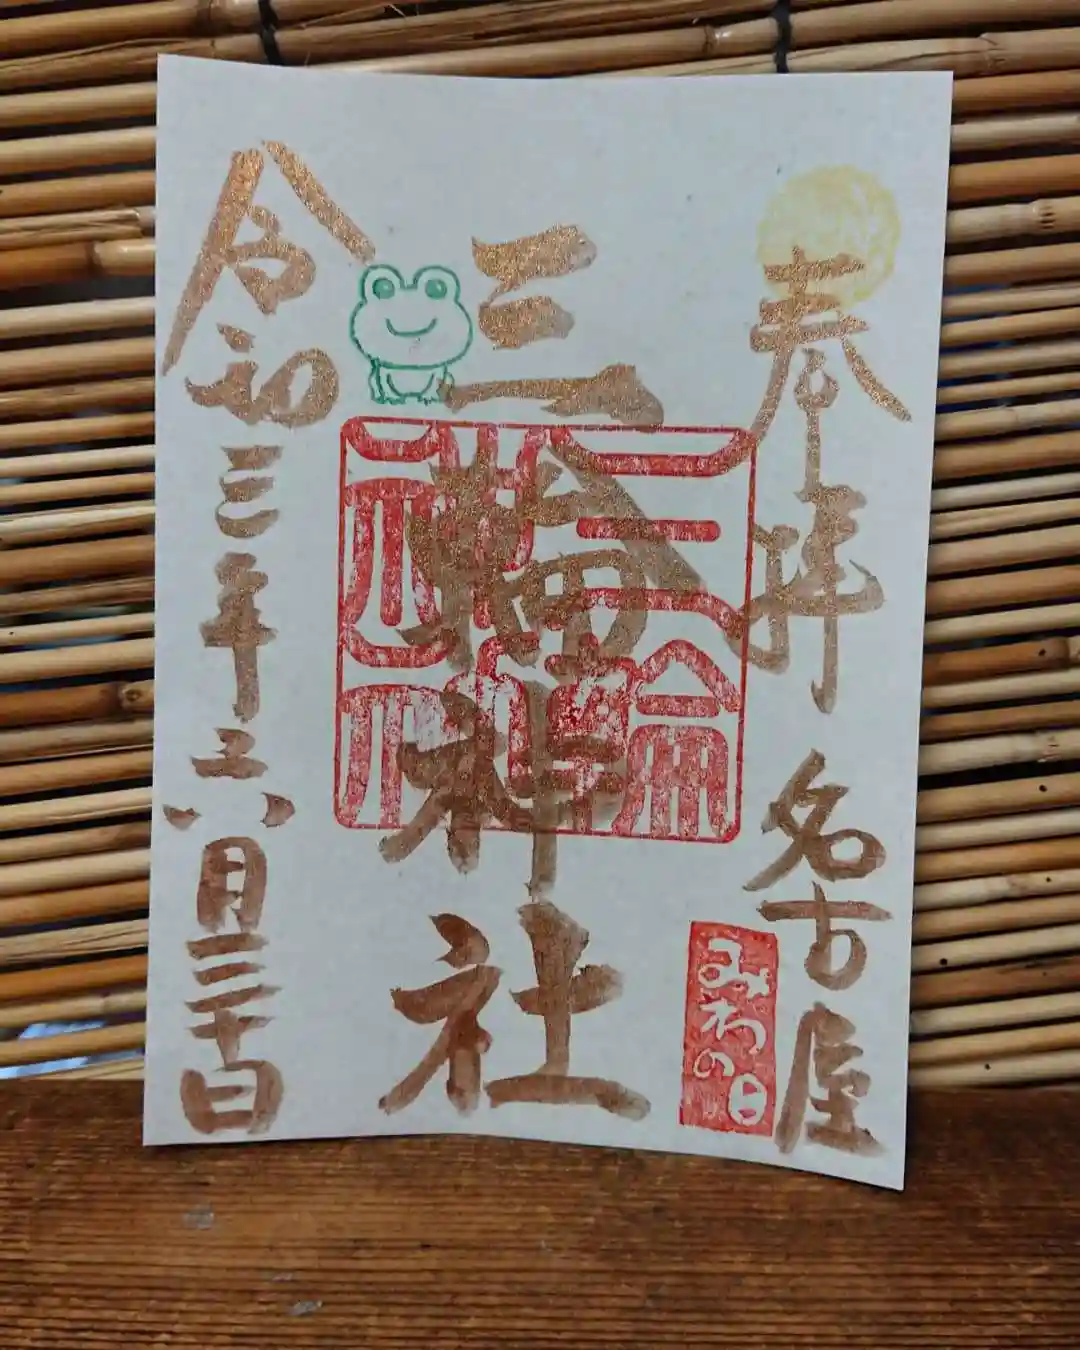 奉拝 名古屋
みわの日
三輪神社
三輪神社
令和三年六月三十日